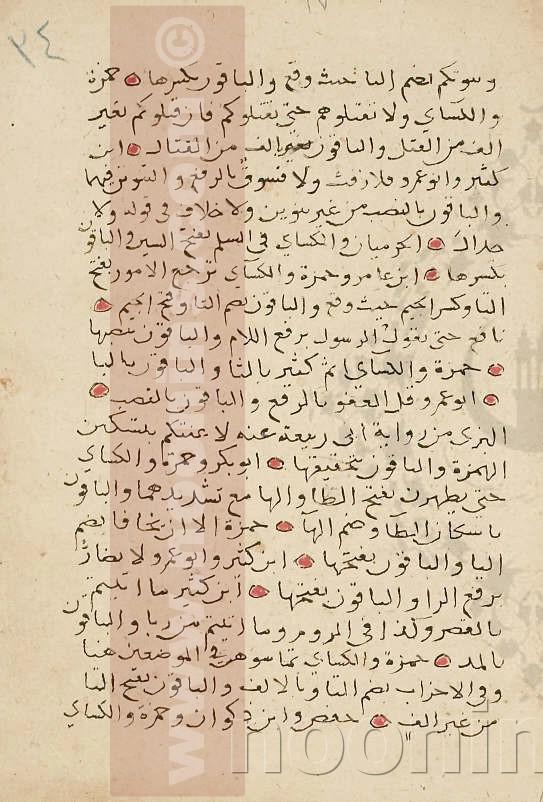 ٣٤
وبيوتكم بضم البا حيث وقع والباقون بكسرها حمزة
والكساي ولا تقتلوهم حتى يقتلوكم فان قتلوكم بغير
الف من القتل والباقون بغير الف من القتال ابن
كثير وابو عمرو فلا رفث ولا فسوق بالرفع والتنوين فيهما
والباقون بالنصب من غير تنوين ولا خلاف في قوله ولا
جدال الحرميان والكساي في السلم بفتح السين والباقون
بكسرها ابن عامر وحمزة والكساي ترجع الامور بفتح
التا وكسر الجيم حيث وقع والباقون بضم التا وفتح الجيم
نافع حتى يقول الرسول برفع اللام والباقون بنصبها
حمزة والكساي اثم كثير بالثا والباقون بالبا
ابو عمرو قل العفو بالرفع والباقون بالنصب
البزي من رواية ابي ربيعة عنه لاعنتكم بتسكين
الهمزة والباقون بتحقيقها ابو بكر وحمزة والكساي
حتى يطهرن بفتح الطا والها مع تشديدهما والباقون
باسكان الطا وضم الها حمزة الا ان يخافا بضم
اليا والباقون بفتحها ابن كثير وابو عمرو لا تضار
برفع الرا والباقون بفتحها ابن كثير ما اتيتم
بالقصر وكذا في الروم وما اتيتم من ربا والباقون
بالمد حمزة والكساي تماسوهن في الموضعين هنا
وفي الاحزاب بضم التا وبالالف والباقون بفتح التا
من غير الف حفص وابن ذكوان وحمزة والكساي
noorin